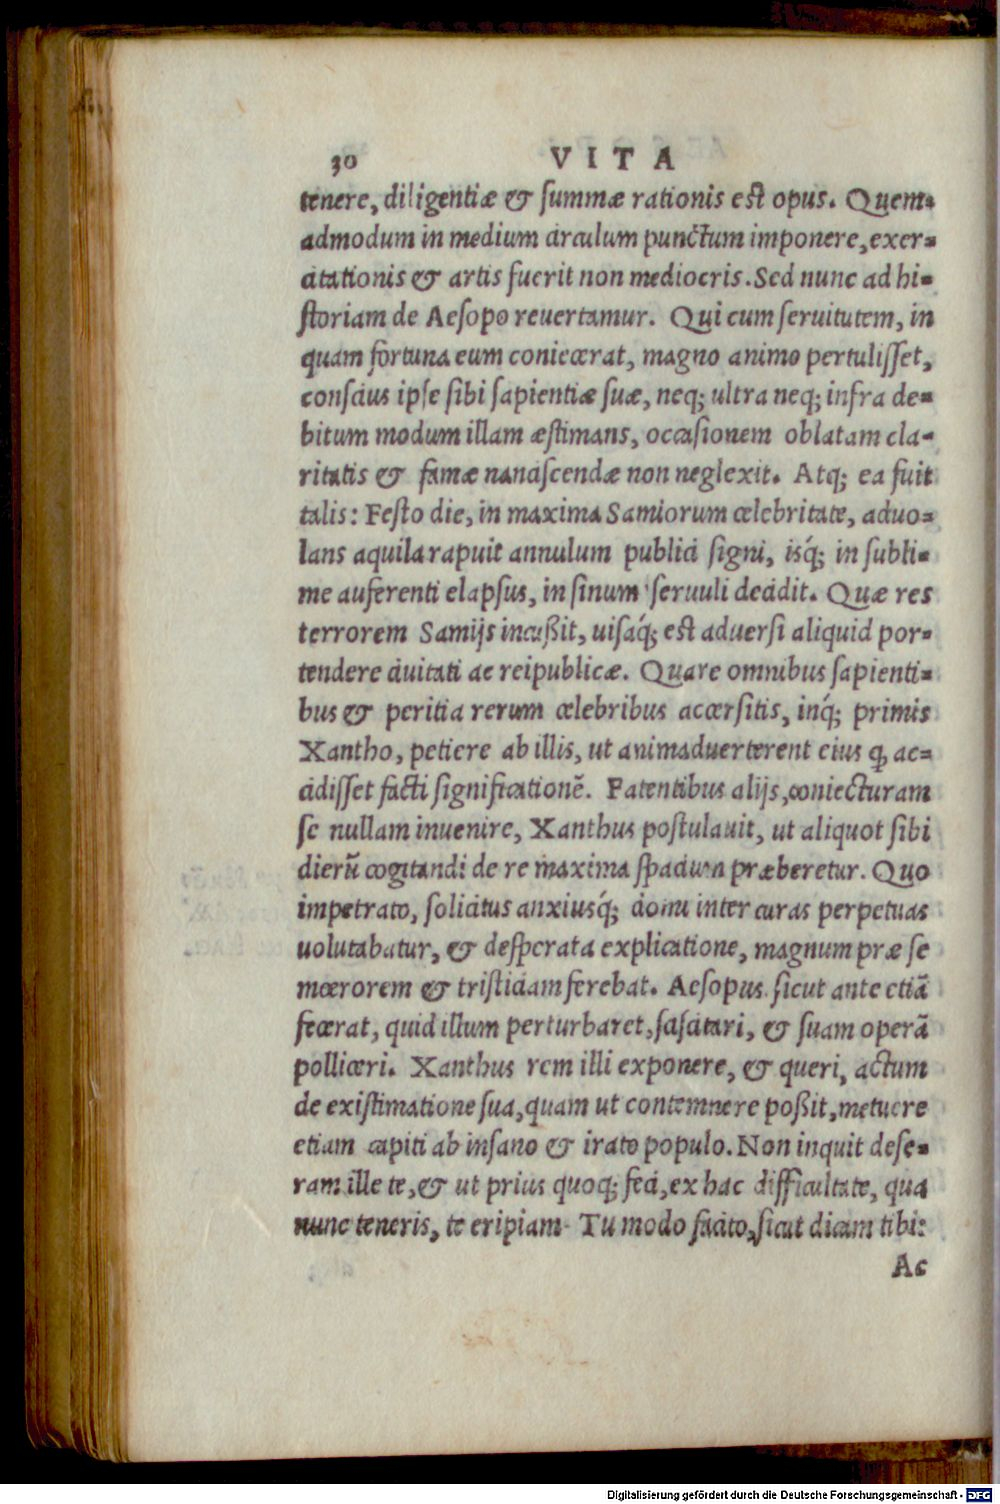 30 VITA
tenere, diligentiæ & summæ rationis est opus. Quem-
admodum in medium circulum punctum imponere, exer-
citationis & artis fuerit non mediocris. Sed nunc ad hi-
storiam de Aesopo reuertamur. Qui cum seruitutem, in
quam fortuna eum coniecerat, magno animo pertulisset,
conscius ipse sibi sapientiæ suæ, neq; ultra neq; infra de-
bitum modum illam æstimans, occasionem oblatam cla-
ritatis & famæ nanciscendæ non neglexit. Atq; ea fuit
talis: Festo die, in maxima Samiorum celebritate, aduo-
lans aquila rapuit annulum publici signi, isq́; in subli-
me auferenti elapsus, in sinum seruuli decidit. Quæ res
terrorem Samijs incußit, uisaq́; est aduersi aliquid por-
tendere ciuitati ac reipublicæ. Quare omnibus sapienti-
bus & peritia rerum celebribus accersitis, inq́; primis
Xantho, petiere ab illis, ut animaduerterent eius ꝙ ac-
cidisset facti significationẽ. Fatentibus alijs, coniecturam
se nullam inuenire, Xanthus postulauit, ut aliquot sibi
dierũ cogitandi de re maxima spacium præberetur. Quo
impetrato, solicitus anxiusq́; domi inter curas perpetuas
uolutabatur, & desperata explicatione, magnum præ se
mœrorem & tristiciam ferebat. Aesopus sicut ante etiã
fecerat, quid illum perturbaret, sciscitari, & suam operã
polliceri. Xanthus rem illi exponere, & queri, actum
de existimatione sua, quam ut contemnere poßit, metuere
etiam capiti ab insano & irato populo. Non inquit dese-
ram ille te, & ut prius quoq; feci, ex hac difficultate, qua
nunc teneris, te eripiam. Tu modo facito, sicut dicam tibi:
Ac
Digitalisierung gefördert durch die Deutsche Forschungsgemeinschaft - DFG